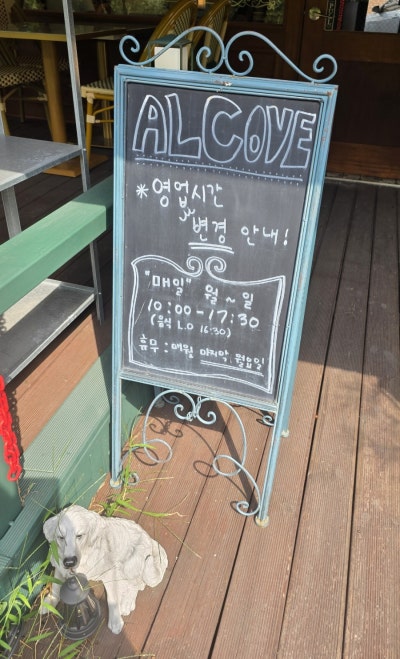 ALCOVE
*영업시간
변경 안내!
"매일" 월~일
10:00-17:30
(음식 L.O 16:30)
휴무 : 매월 마지막 월요일